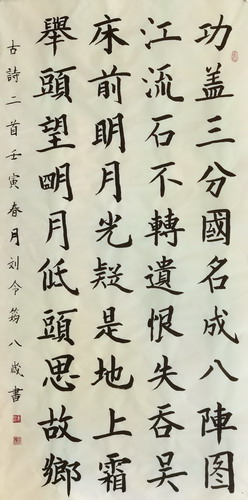 功盖三分國名成八陣图
江流石不轉遺恨失吞吴
床前明月光疑是地上霜
舉頭望明月低頭思故鄉
古詩二首壬寅春月刘令筠八歲書